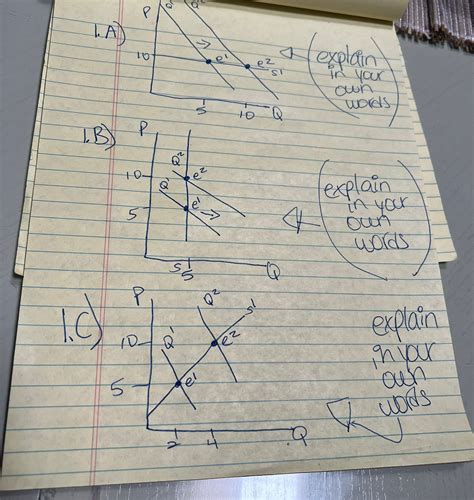 1.A)
P
Q²
10
e¹
e²
s¹
5
10
Q
(explain
in your
own
words)
1.B)
P
Q²
10
Q¹
e²
5
e¹
s
5
Q
(explain
in your
own
words)
1.C)
P
Q²
s¹
10
Q¹
e²
5
e¹
2
4
Q
explain
in your
own
words